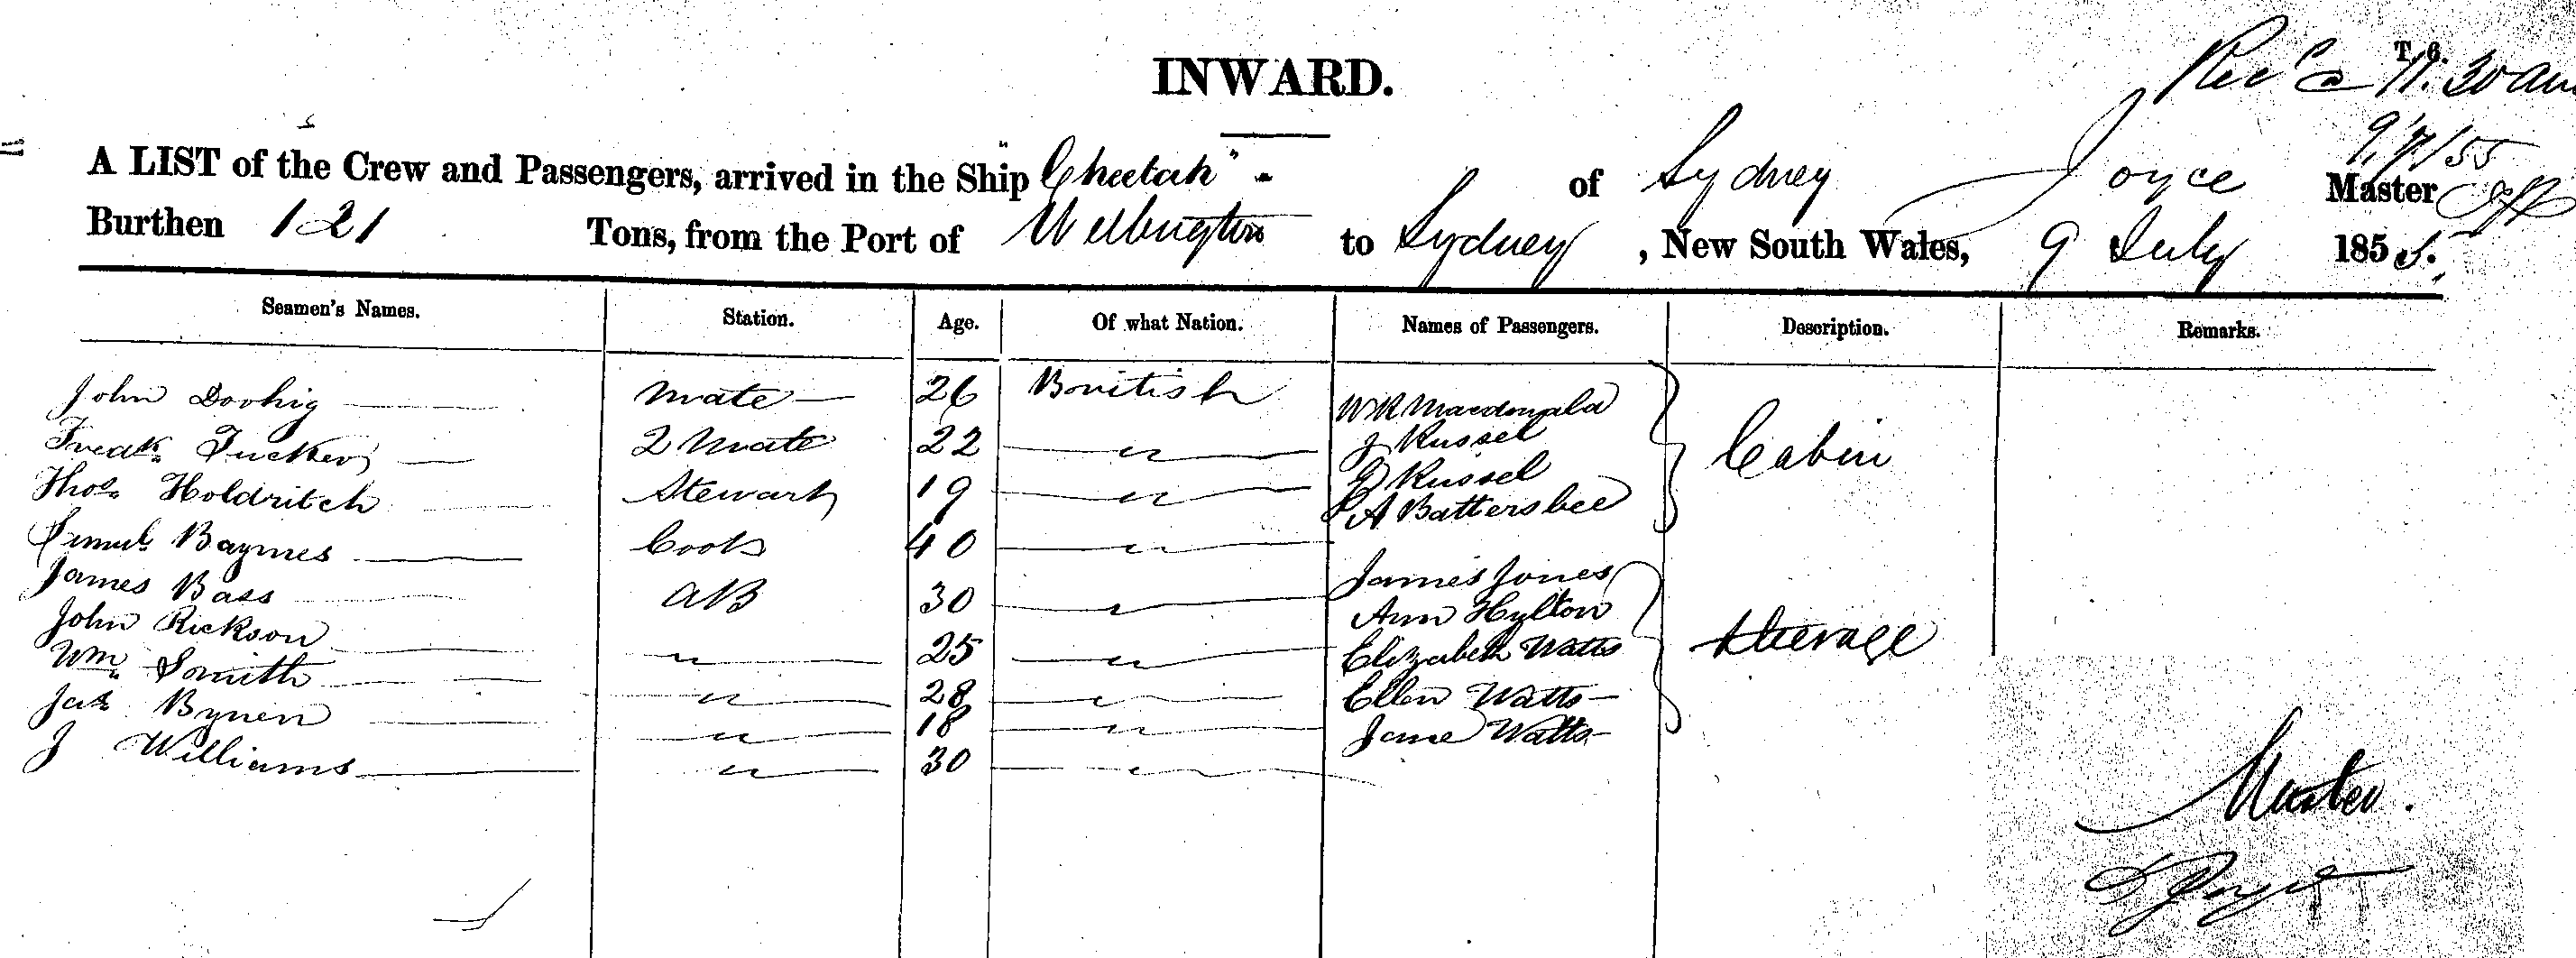 T. 6.
Rec'd 11.30 am
INWARD.
9/7/55
A LIST of the Crew and Passengers, arrived in the Ship "Cheetah" - of Sydney Joyce Master
Burthen 121 Tons, from the Port of Wellington to Sydney, New South Wales, 9 July 1855.
Seamen's Names. Station. Age. Of what Nation. Names of Passengers. Description. Remarks.
John Doohig Mate 26 British W R Macdonald
Fredk. Tucker 2 Mate 22 " J Russel Cabin
Thos. Holdritch Steward 19 " G Russel
A Battersbee
Saml. Baymes Cook 40 "
James Bass AB 30 " James Jones
Ann Hylton
John Rickson " 25 " Elizabeth Watts Steerage
Wm. Smith " 28 " Ellen Watts
Jas. Bynen " 18 " Jane Watts
J Williams " 30 "
Master.
Joyce